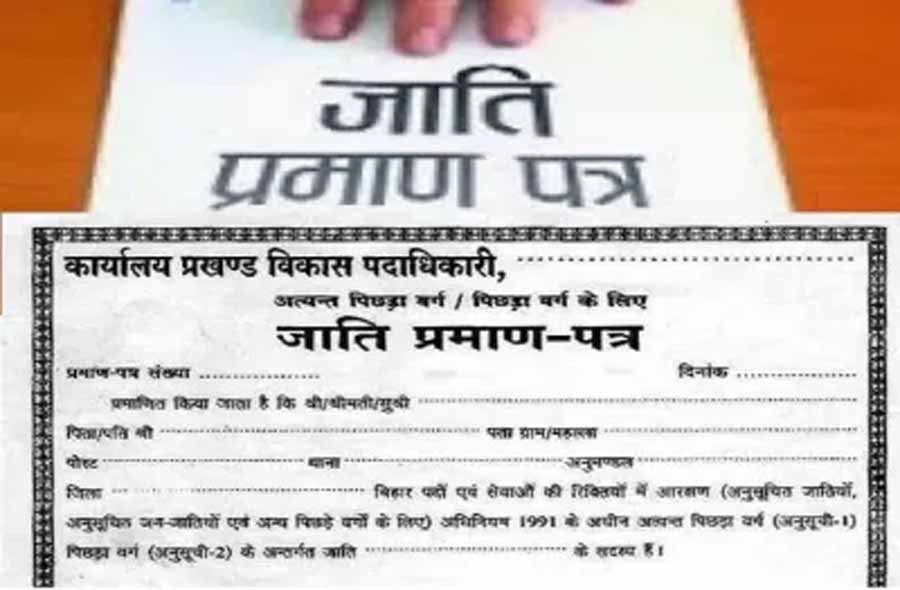 जाति
प्रमाण पत्र
कार्यालय प्रखण्ड विकास पदाधिकारी, ..............................
अत्यन्त पिछड़ा वर्ग / पिछड़ा वर्ग के लिए
जाति प्रमाण-पत्र
प्रमाण-पत्र संख्या .................... दिनांक ....................
प्रमाणित किया जाता है कि श्री/श्रीमती/सुश्री ..............................
पिता/पति श्री .............................. पता ग्राम/महल्ला ..............................
पोस्ट .............................. थाना .............................. अनुमण्डल ..............................
जिला .............................. बिहार पदों एवं सेवाओं की रिक्तियों में आरक्षण (अनुसूचित जातियों,
अनुसूचित जन-जातियों एवं अन्य पिछड़े वर्गों के लिए) अधिनियम 1991 के अधीन अत्यन्त पिछड़ा वर्ग (अनुसूची-1)
पिछड़ा वर्ग (अनुसूची-2) के अन्तर्गत जाति .............................. के सदस्य हैं।